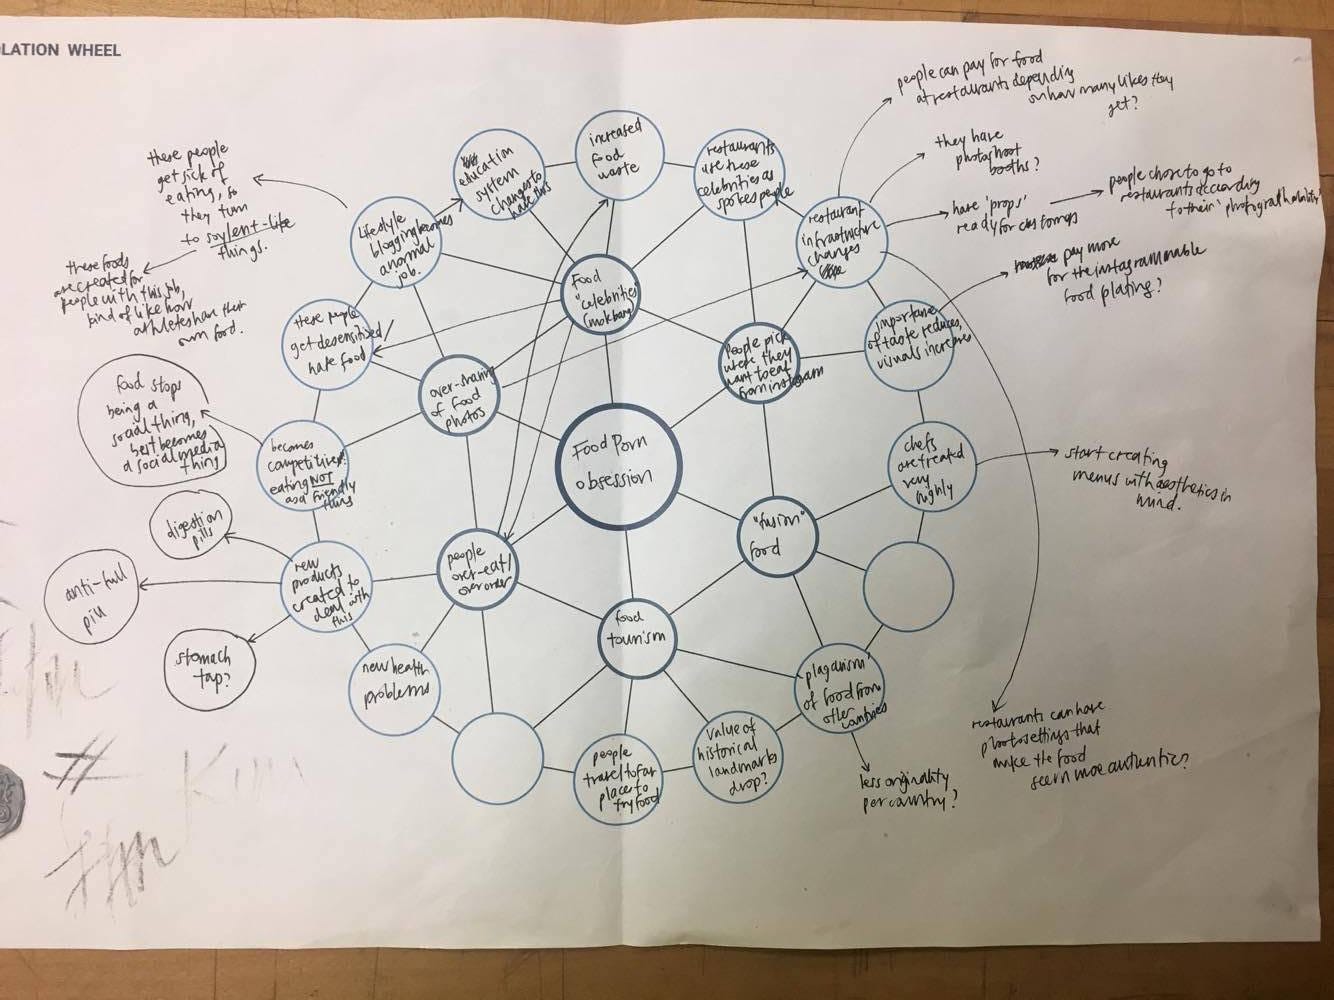 LATION WHEEL
people can pay for food
at restaurants depending
on how many likes they
get?
they have
photoshoot
booths?
people choose to go to
restaurants according
to their 'photographability'
have 'props'
ready for customers
pay more
for the instagrammable
food plating?
these people
get sick of
eating, so
they turn
to soylent-like
things.
these foods
are created for
people with this job,
kind of like how
athletes have their
own food.
education
system
changes to
have this
increased
food
waste
restaurants
use these
celebrities as
spokespeople
restaurant
infrastructure
changes
lifestyle
blogging becomes
a normal
job.
these people
get desensitised/
hate food
Food
"celebrities"
(mokbang)
people pick
where they
want to eat
from instagram
importance
of taste reduces,
visuals increases
over-sharing
of food
photos
food stops
being a
social thing,
becomes
a social media
thing
becomes
competitive?
eating NOT
as a friendly
thing
Food Porn
obsession
chefs
are treated
very
highly
start creating
menus with aesthetics in
mind.
digestion
pills
anti-full
pill
stomach
tap?
new
products
created to
deal with
this
people
over-eat/
over order
"fusion"
food
food
tourism
new health
problems
people
travel to far
place to
try food
value of
historical
landmarks
drop?
plagarism
of food from
other
countries
less originality
per country?
restaurants can have
photosettings that
make the food
seem more authentic?
#